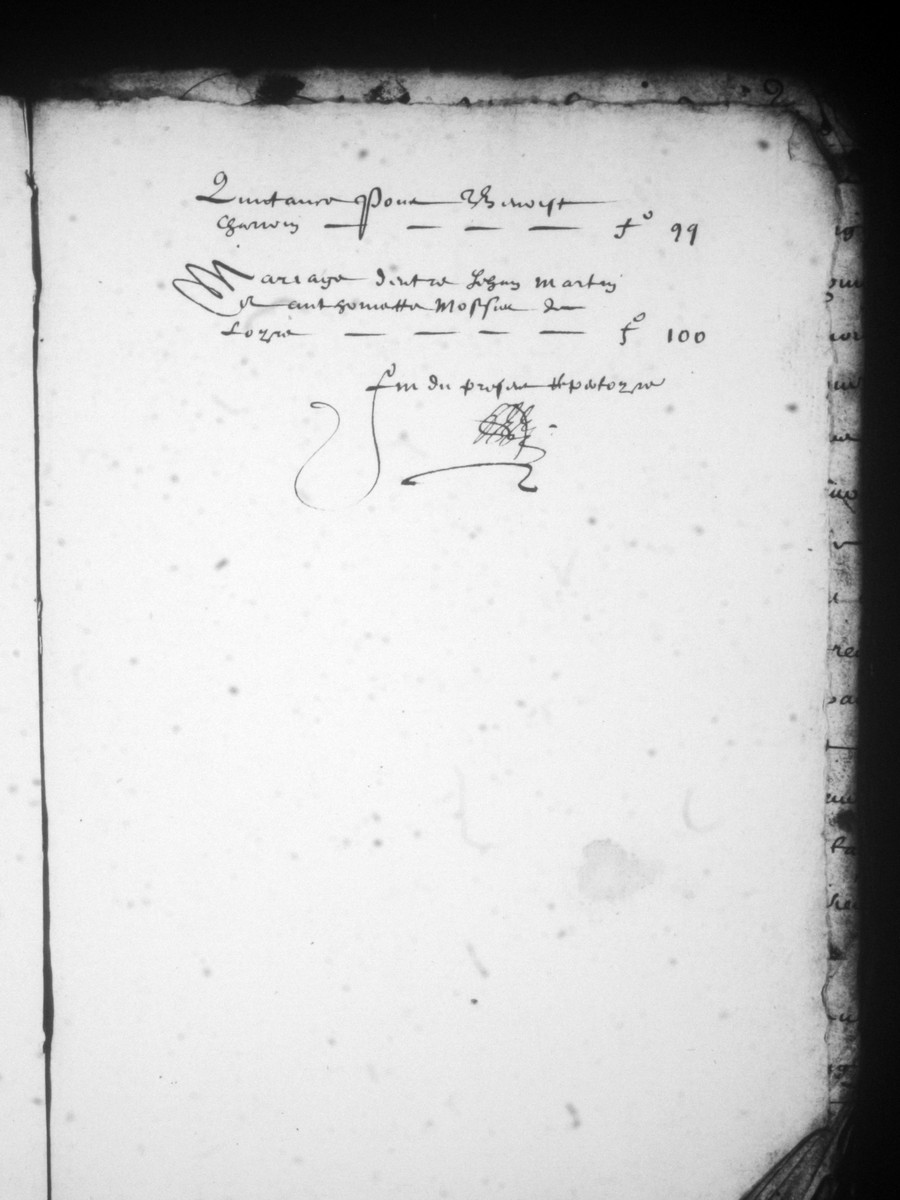 Quictance Pour Benoist
Charvin — — — — f° 99
Mariage d'entre Jehan Martin
Et anthoinette Mossier de
Lozre — — — — f° 100
fin du present Repertozre